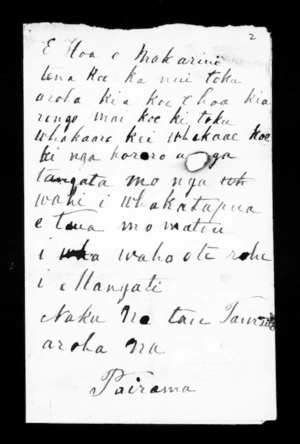 2
E Hoa e Makarini
tena koe ka nui toku
aroha kia koe E hoa kia
rongo mai koe ki toku
whakaaro kei whakaae koe
ki nga korero a nga
tangata mo nga
wahi i whakatapua
e taua mo matou
i waho o te rohe
i Mangati
Naku Na tau
aroha na
Pairama